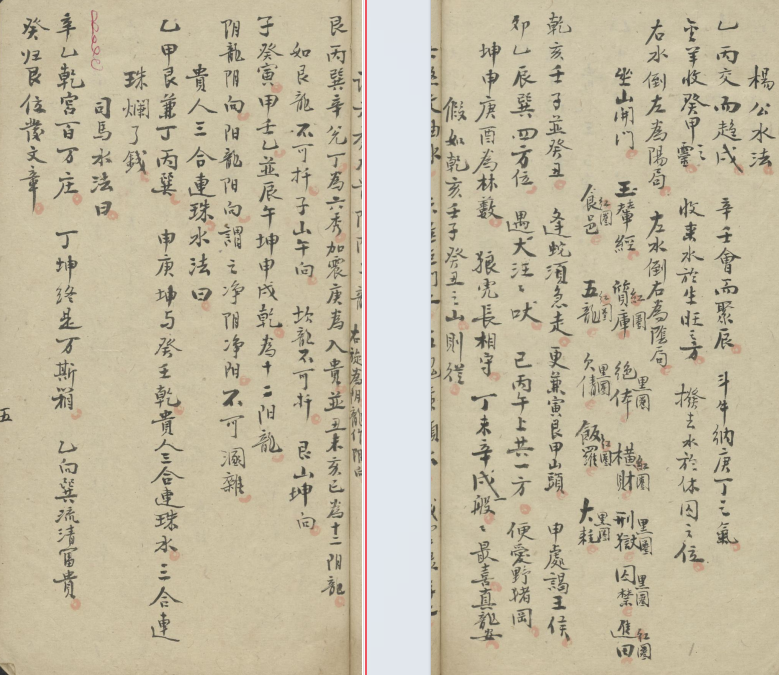 楊公水法
乙丙交而趨戌 辛壬會而聚辰 斗牛納庚丁之氣
金羊收癸甲灵 收来水於生旺之方 撥去水於休囚之位
右水倒左為陽局 左水倒右為陰局
坐山開門 玉輦經 質庫 紅圈 絕体 黑圈 橫財 紅圈 刑獄 黑圈 囚禁 黑圈 進田 紅圈
食邑 紅圈 五龍 紅圈 欠債 黑圈 飯籮 紅圈 大耗 黑圈
乾亥壬子並癸丑 逢蛇須急走 更兼寅艮甲山頭 申處謁王侯
卯乙辰巽四方位 遇犬汪〻吠 己丙午上共一方 便愛野猪岡
坤申庚酉為林藪 狼虎長相守 丁未辛戌般〻 最喜真龍安
假如乾亥壬子癸丑之山則從
艮丙巽辛兌丁為六秀加震庚為八貴並丑未亥巳為十二阴龍
如艮龍不可扦子山午向 坎龍不可扦 艮山坤向
子癸寅甲壬乙並辰午坤申戌乾為十二阳龍
阴龍阴向阳龍阳向謂之净阴净阳不可溷雜
貴人三合連珠水法曰
乙甲艮兼丁丙巽 申庚坤与癸壬乾貴人三合連珠水三合連
珠爛了錢
司馬水法曰
辛乙乾宮百万庄 丁坤終是万斯箱 乙向巽流清冨貴
癸归艮位發文章
五